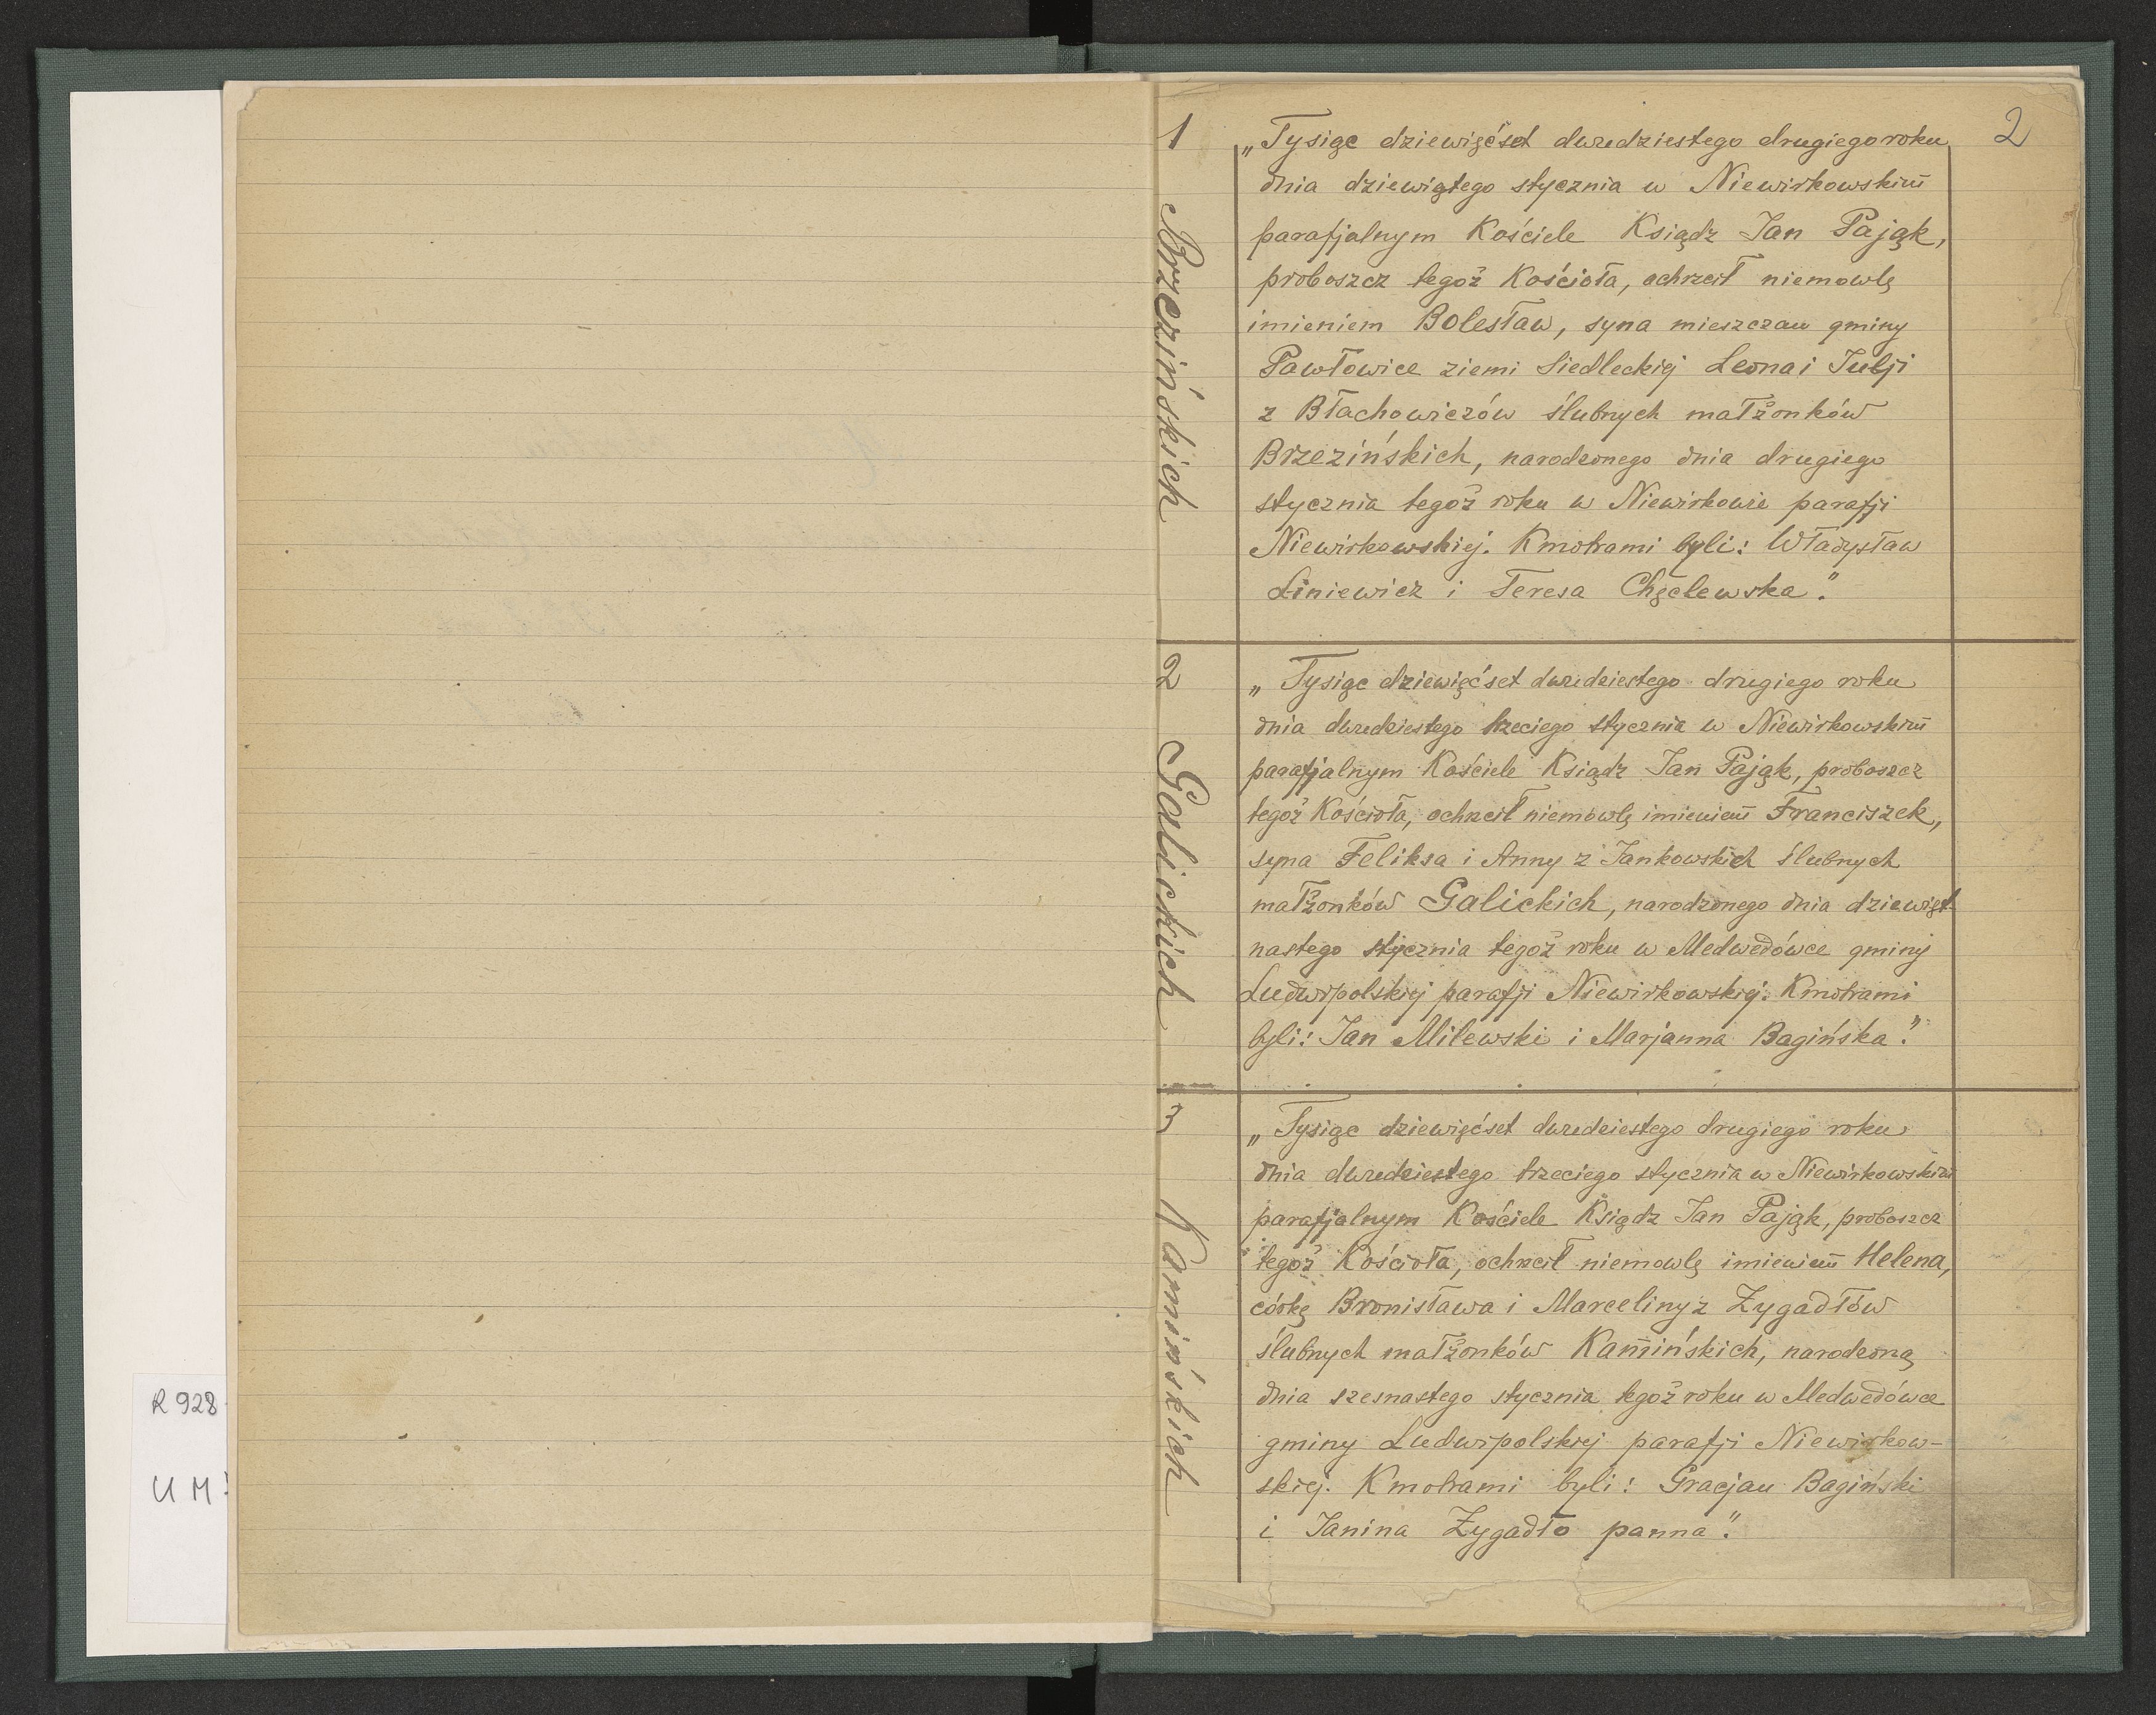 R 928
U M
2
1
Brzezińskich
„Tysiąc dziewięćset dwudziestego drugiego roku
dnia dziewiątego stycznia w Niewirkowskim̄
parafjalnym Kościele Ksiądz Jan Pająk,
proboszcz tegoż Kościoła, ochrzcił niemowlę
imieniem Bolesław, syna mieszczan gminy
Pawłowice ziemi Siedleckiej Leona i Julji
z Błachowiczów ślubnych małżonków
Brzezińskich, narodzonego dnia drugiego
stycznia tegoż roku w Niewirkowie parafji
Niewirkowskiej. Kmotrami byli: Władysław
Liniewicz i Teresa Chęclewska."
2
Galickich
„Tysiąc dziewięćset dwudziestego drugiego roku
dnia dwudziestego trzeciego stycznia w Niewirkowskim̄
parafjalnym Kościele Ksiądz Jan Pająk, proboszcz
tegoż Kościoła, ochrzcił niemowlę imieniem̄ Franciszek,
syna Feliksa i Anny z Jankowskich ślubnych
małżonków Galickich, narodzonego dnia dziewięt-
nastego stycznia tegoż roku w Medwedówce gminy
Ludwipolskiej parafji Niewirkowskiej. Kmotrami
byli: Jan Milewski i Marjanna Bagińska."
3
Kamińskich
„Tysiąc dziewięćset dwudziestego drugiego roku
dnia dwudziestego trzeciego stycznia w Niewirkowskim̄
parafjalnym Kościele Ksiądz Jan Pająk, proboszcz
tegoż Kościoła, ochrzcił niemowlę imieniem̄ Helena,
córkę Bronisława i Marceliny z Zygadłów
ślubnych małżonków Kamińskich, narodzoną
dnia szesnastego stycznia tegoż roku w Medwedówce
gminy Ludwipolskiej parafji Niewirkow-
skiej. Kmotrami byli: Gracjan Bagiński
i Janina Zygadło panna."